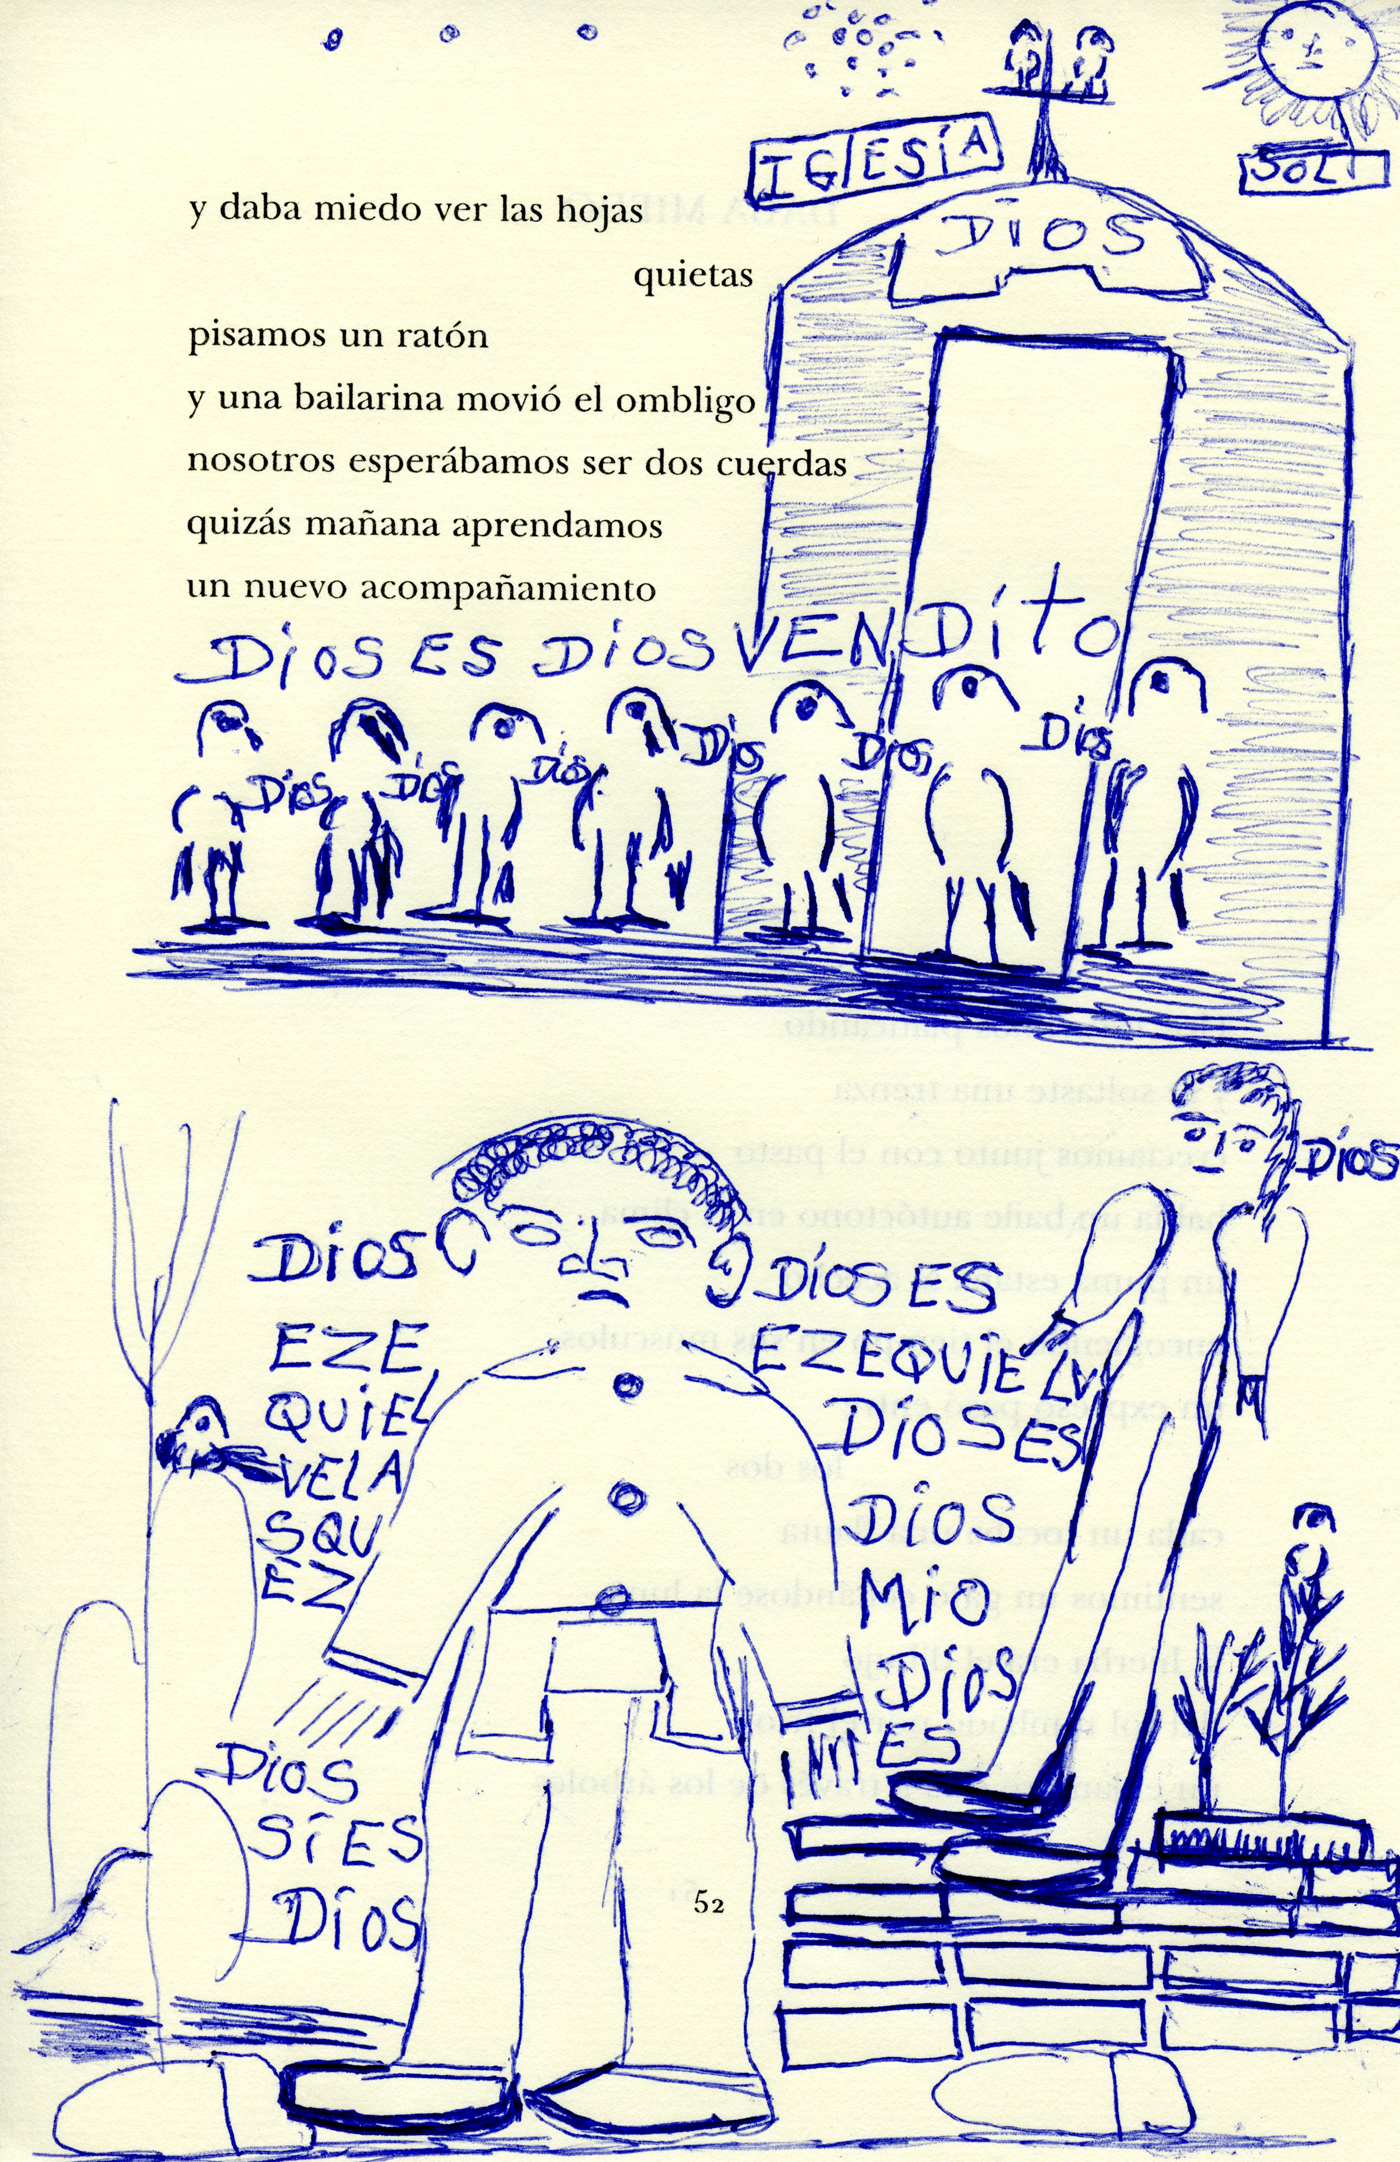 IGlESíA
SOL
DiOS
y daba miedo ver las hojas
quietas
pisamos un ratón
y una bailarina movió el ombligo
nosotros esperábamos ser dos cuerdas
quizás mañana aprendamos
un nuevo acompañamiento
DiOS ES DiOS VENDíTO
Díos Díos Díos Díos Díos Díos
DíOS
DiOS
EZE
QUiEL
VELA
SQU
EZ
DíOS ES
EZEQUiEL V
DiOS ES
DiOS
MiO
DiOS
ES
DiOS
Sí ES
DíOS
52